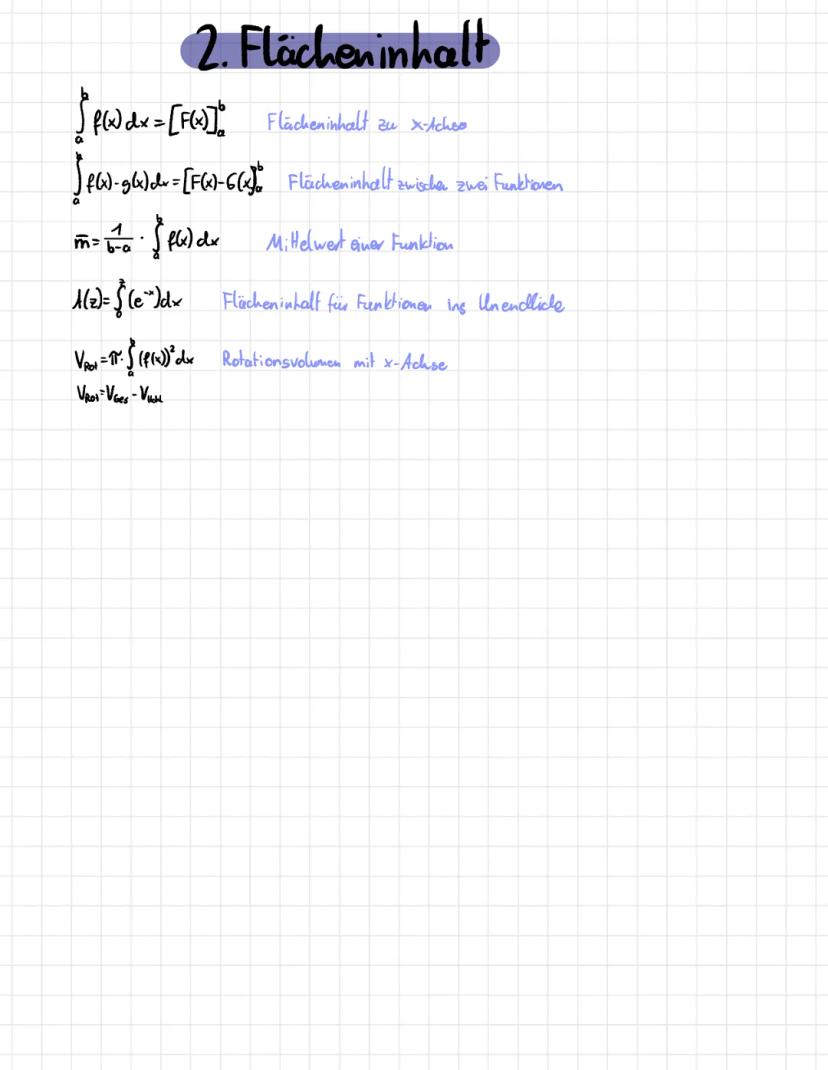 2. Flächeninhalt
∫ₐᵇ f(x) dx = [F(x)]ₐᵇ Flächeninhalt zu x-Achse
∫ₐᵇ f(x)-g(x) dx = [F(x)-G(x)]ₐᵇ Flächeninhalt zwischen zwei Funktionen
m̄ = 1/(b-a) · ∫ₐᵇ f(x) dx Mittelwert einer Funktion
A(z) = ∫₀ᶻ (e⁻ˣ) dx Flächeninhalt für Funktionen ins Unendliche
V_Rot = π · ∫ₐᵇ (f(x))² dx Rotationsvolumen mit x-Achse
V_Rot = V_Ges - V_Hohl